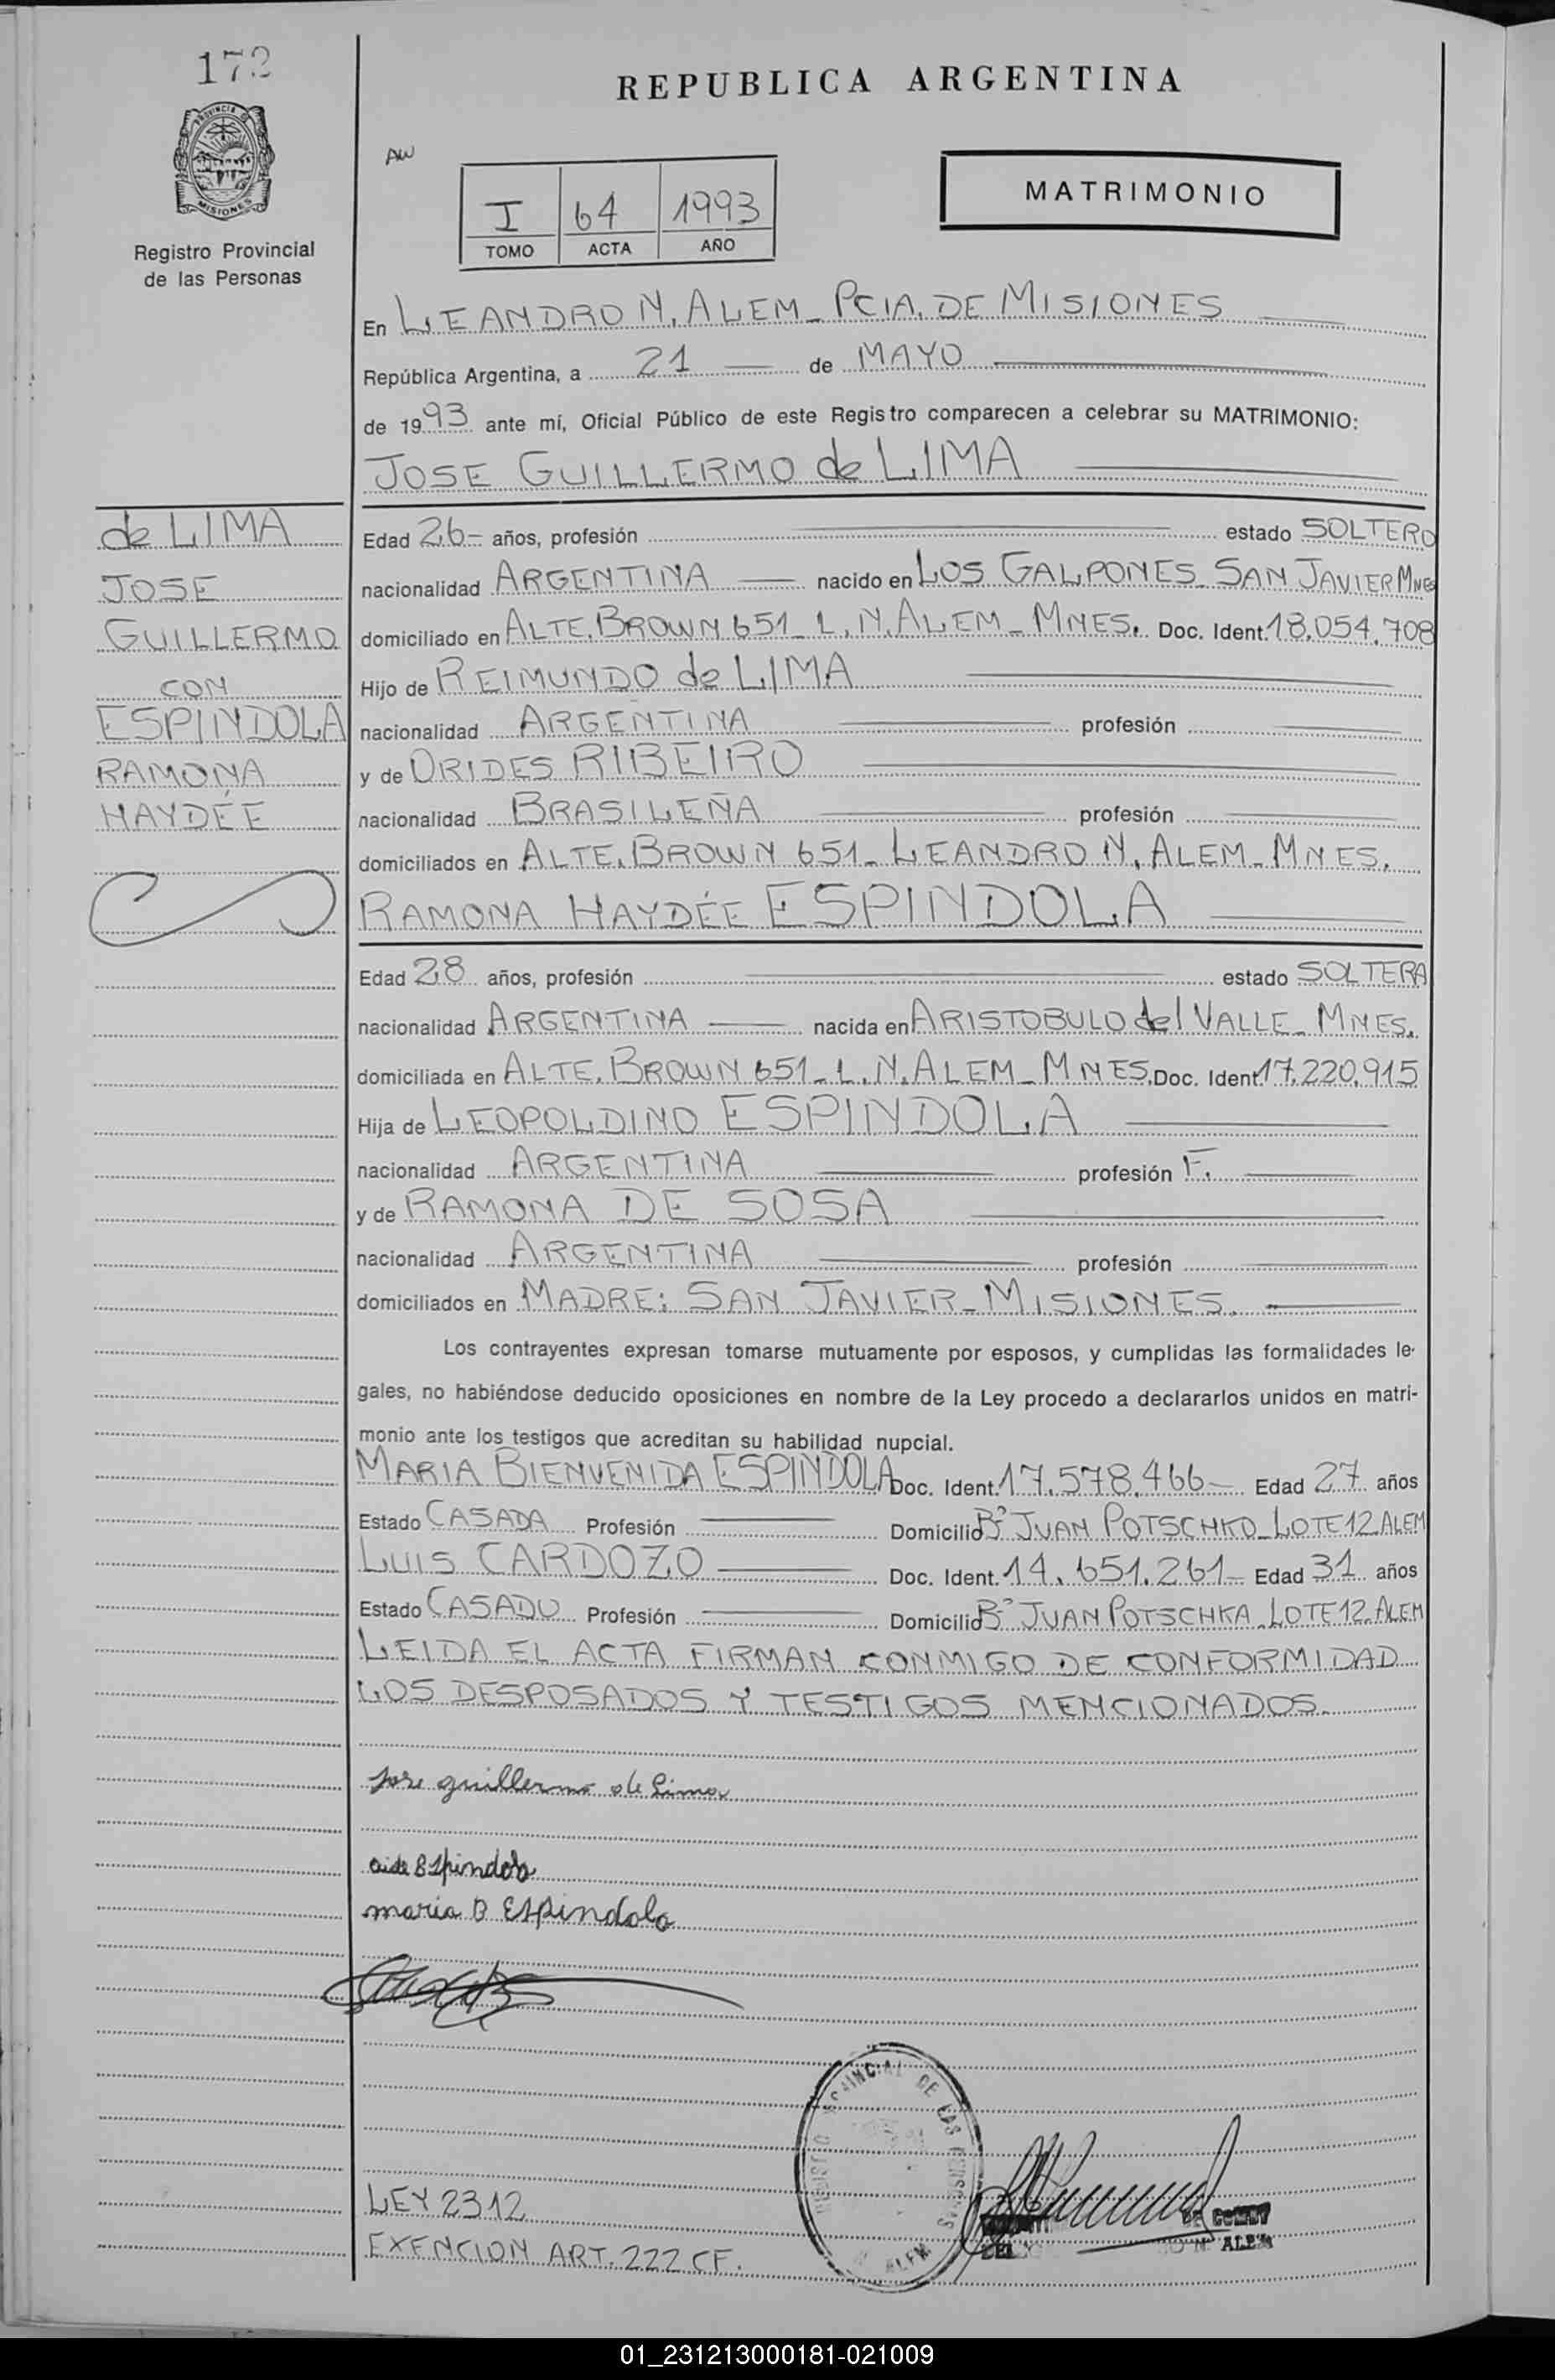 172
REPUBLICA ARGENTINA
PROVINCIA DE
MISIONES
Registro Provincial
de las Personas
AW
I 64 1993
TOMO ACTA AÑO
MATRIMONIO
En LEANDRO N. ALEM_ PCIA. DE MISIONES
República Argentina, a 21 de MAYO
de 1993 ante mí, Oficial Público de este Registro comparecen a celebrar su MATRIMONIO:
JOSE GUILLERMO de LIMA
de LIMA
JOSE
GUILLERMO
CON
ESPINDOLA
RAMONA
HAYDÉE
Edad 26- años, profesión estado SOLTERO
nacionalidad ARGENTINA nacido en LOS GALPONES_ SAN JAVIER MNES
domiciliado en ALTE. BROWN 651_ L.N. ALEM_ MNES. Doc. Ident. 18.054.708
Hijo de REIMUNDO de LIMA
nacionalidad ARGENTINA profesión
y de ORIDES RIBEIRO
nacionalidad BRASILEÑA profesión
domiciliados en ALTE. BROWN 651_ LEANDRO N. ALEM_ MNES.
RAMONA HAYDÉE ESPINDOLA
Edad 28 años, profesión estado SOLTERA
nacionalidad ARGENTINA nacida en ARISTOBULO del VALLE_ MNES.
domiciliada en ALTE. BROWN 651_ L.N. ALEM_ MNES. Doc. Ident. 17.220.915
Hija de LEOPOLDINO ESPINDOLA
nacionalidad ARGENTINA profesión F.
y de RAMONA DE SOSA
nacionalidad ARGENTINA profesión
domiciliados en MADRE: SAN JAVIER_ MISIONES.
Los contrayentes expresan tomarse mutuamente por esposos, y cumplidas las formalidades le-
gales, no habiéndose deducido oposiciones en nombre de la Ley procedo a declararlos unidos en matri-
monio ante los testigos que acreditan su habilidad nupcial.
MARIA BIENVENIDA ESPINDOLA Doc. Ident. 17.578.466- Edad 27 años
Estado CASADA Profesión Domicilio Bº JUAN POTSCHKO_ LOTE 12 ALEM
LUIS CARDOZO Doc. Ident. 14.651.261- Edad 31 años
Estado CASADO Profesión Domicilio Bº JUAN POTSCHKA_ LOTE 12_ ALEM
LEIDA EL ACTA FIRMAN CONMIGO DE CONFORMIDAD
LOS DESPOSADOS Y TESTIGOS MENCIONADOS.
Jose guillermo de Lima
aide Espindola
maria B Espindola
REGISTRO PROVINCIAL DE LAS PERSONAS
ALEM
LEY 2312
EXENCION ART. 222 CF.
ALEM
01_231213000181-021009